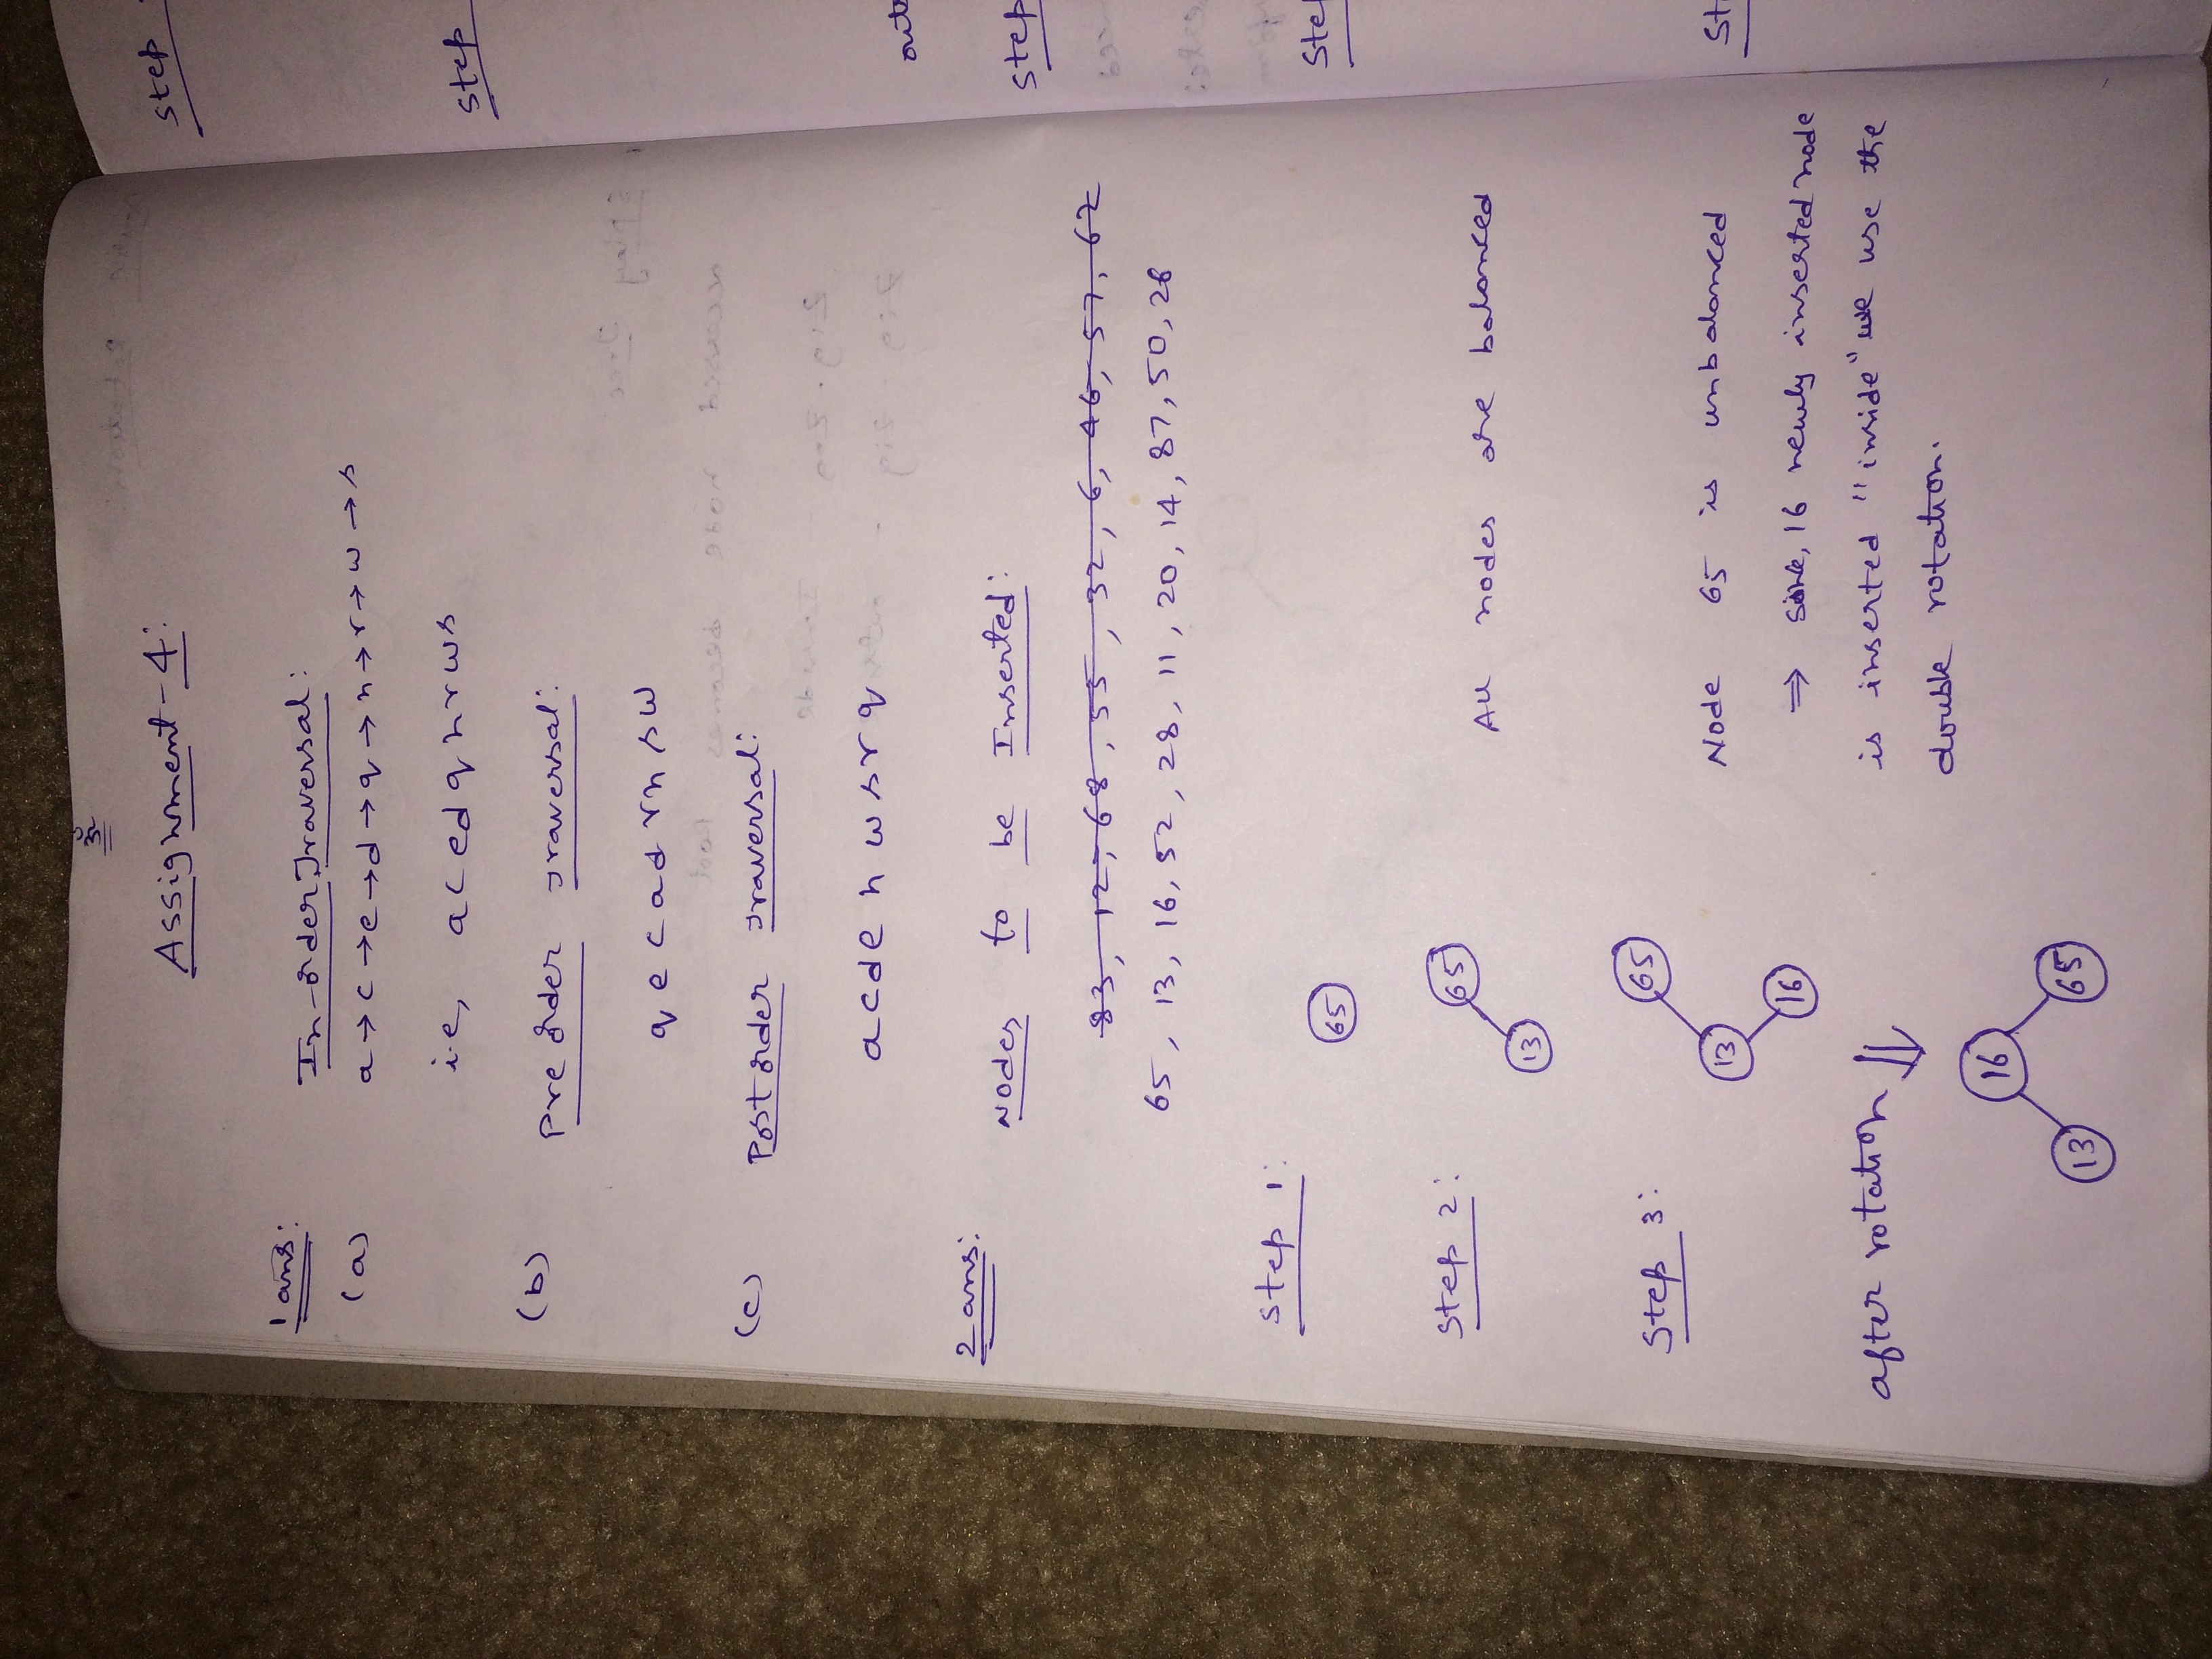 Assignment-4:
1 ans:
In-order Traversal:
(a) a→c→e→d→q→n→r→w→s
i.e, acedqnrws
(b) Pre order Traversal:
q e c a d r n s w
(c) Post order Traversal:
a c d e n w s r q
2 ans:
Nodes to be Inserted:
83, 12, 68, 55, 32, 6, 46, 57, 62
65, 13, 16, 52, 28, 11, 20, 14, 87, 50, 26
Step 1:
65
Step 2:
65
All nodes are balanced
13
Step 3:
65
13
Node 65 is unbalanced
16
⇒ since, 16 newly inserted node
is inserted "inside" we use the
double rotation.
after rotation ⇓
16
13 65
step
step
step